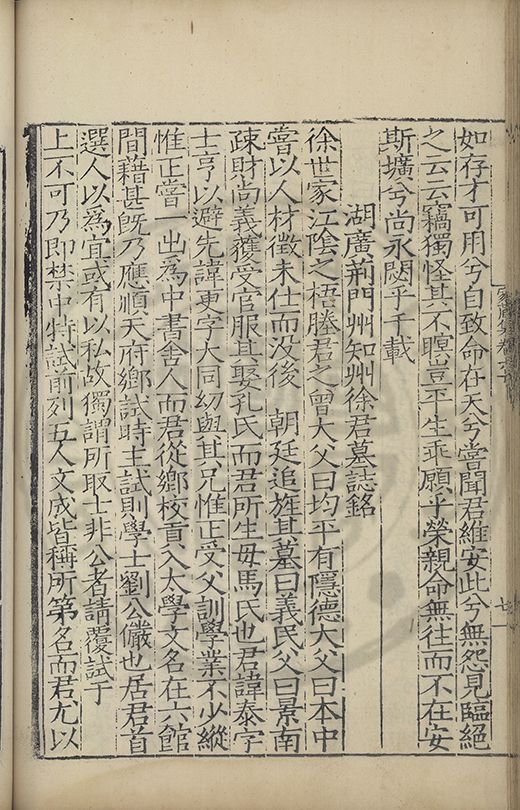 如存才可用兮自致命在天兮嘗聞君維安此兮無怨見臨絕
之云云竊獨怪其不瞑豈平生乖願乎榮親命無往而不在安
斯壙兮尚永閟乎千載
湖廣荆門州知州徐君墓誌銘
徐世家江陰之梧塍君之曾大父曰均平有隱德大父曰本中
嘗以人材徵未仕而没後 朝廷追旌其墓曰義民父曰景南
疎財尚義獲受官服其娶孔氏而君所生母馬氏也君諱泰字
士亨以避先諱更字大同幼與其兄惟正受父訓學業不少縱
惟正嘗一出爲中書舍人而君從鄉校貢入大學文名在六館
間藉甚旣乃應順天府鄉試時主試則學士劉公儼也居君首
選人以為宜或有以私故獨謂所取士非公者請覆試于
上不可乃即禁中特試前列五人文成皆稱所第名而君尤以
家藏集卷六十